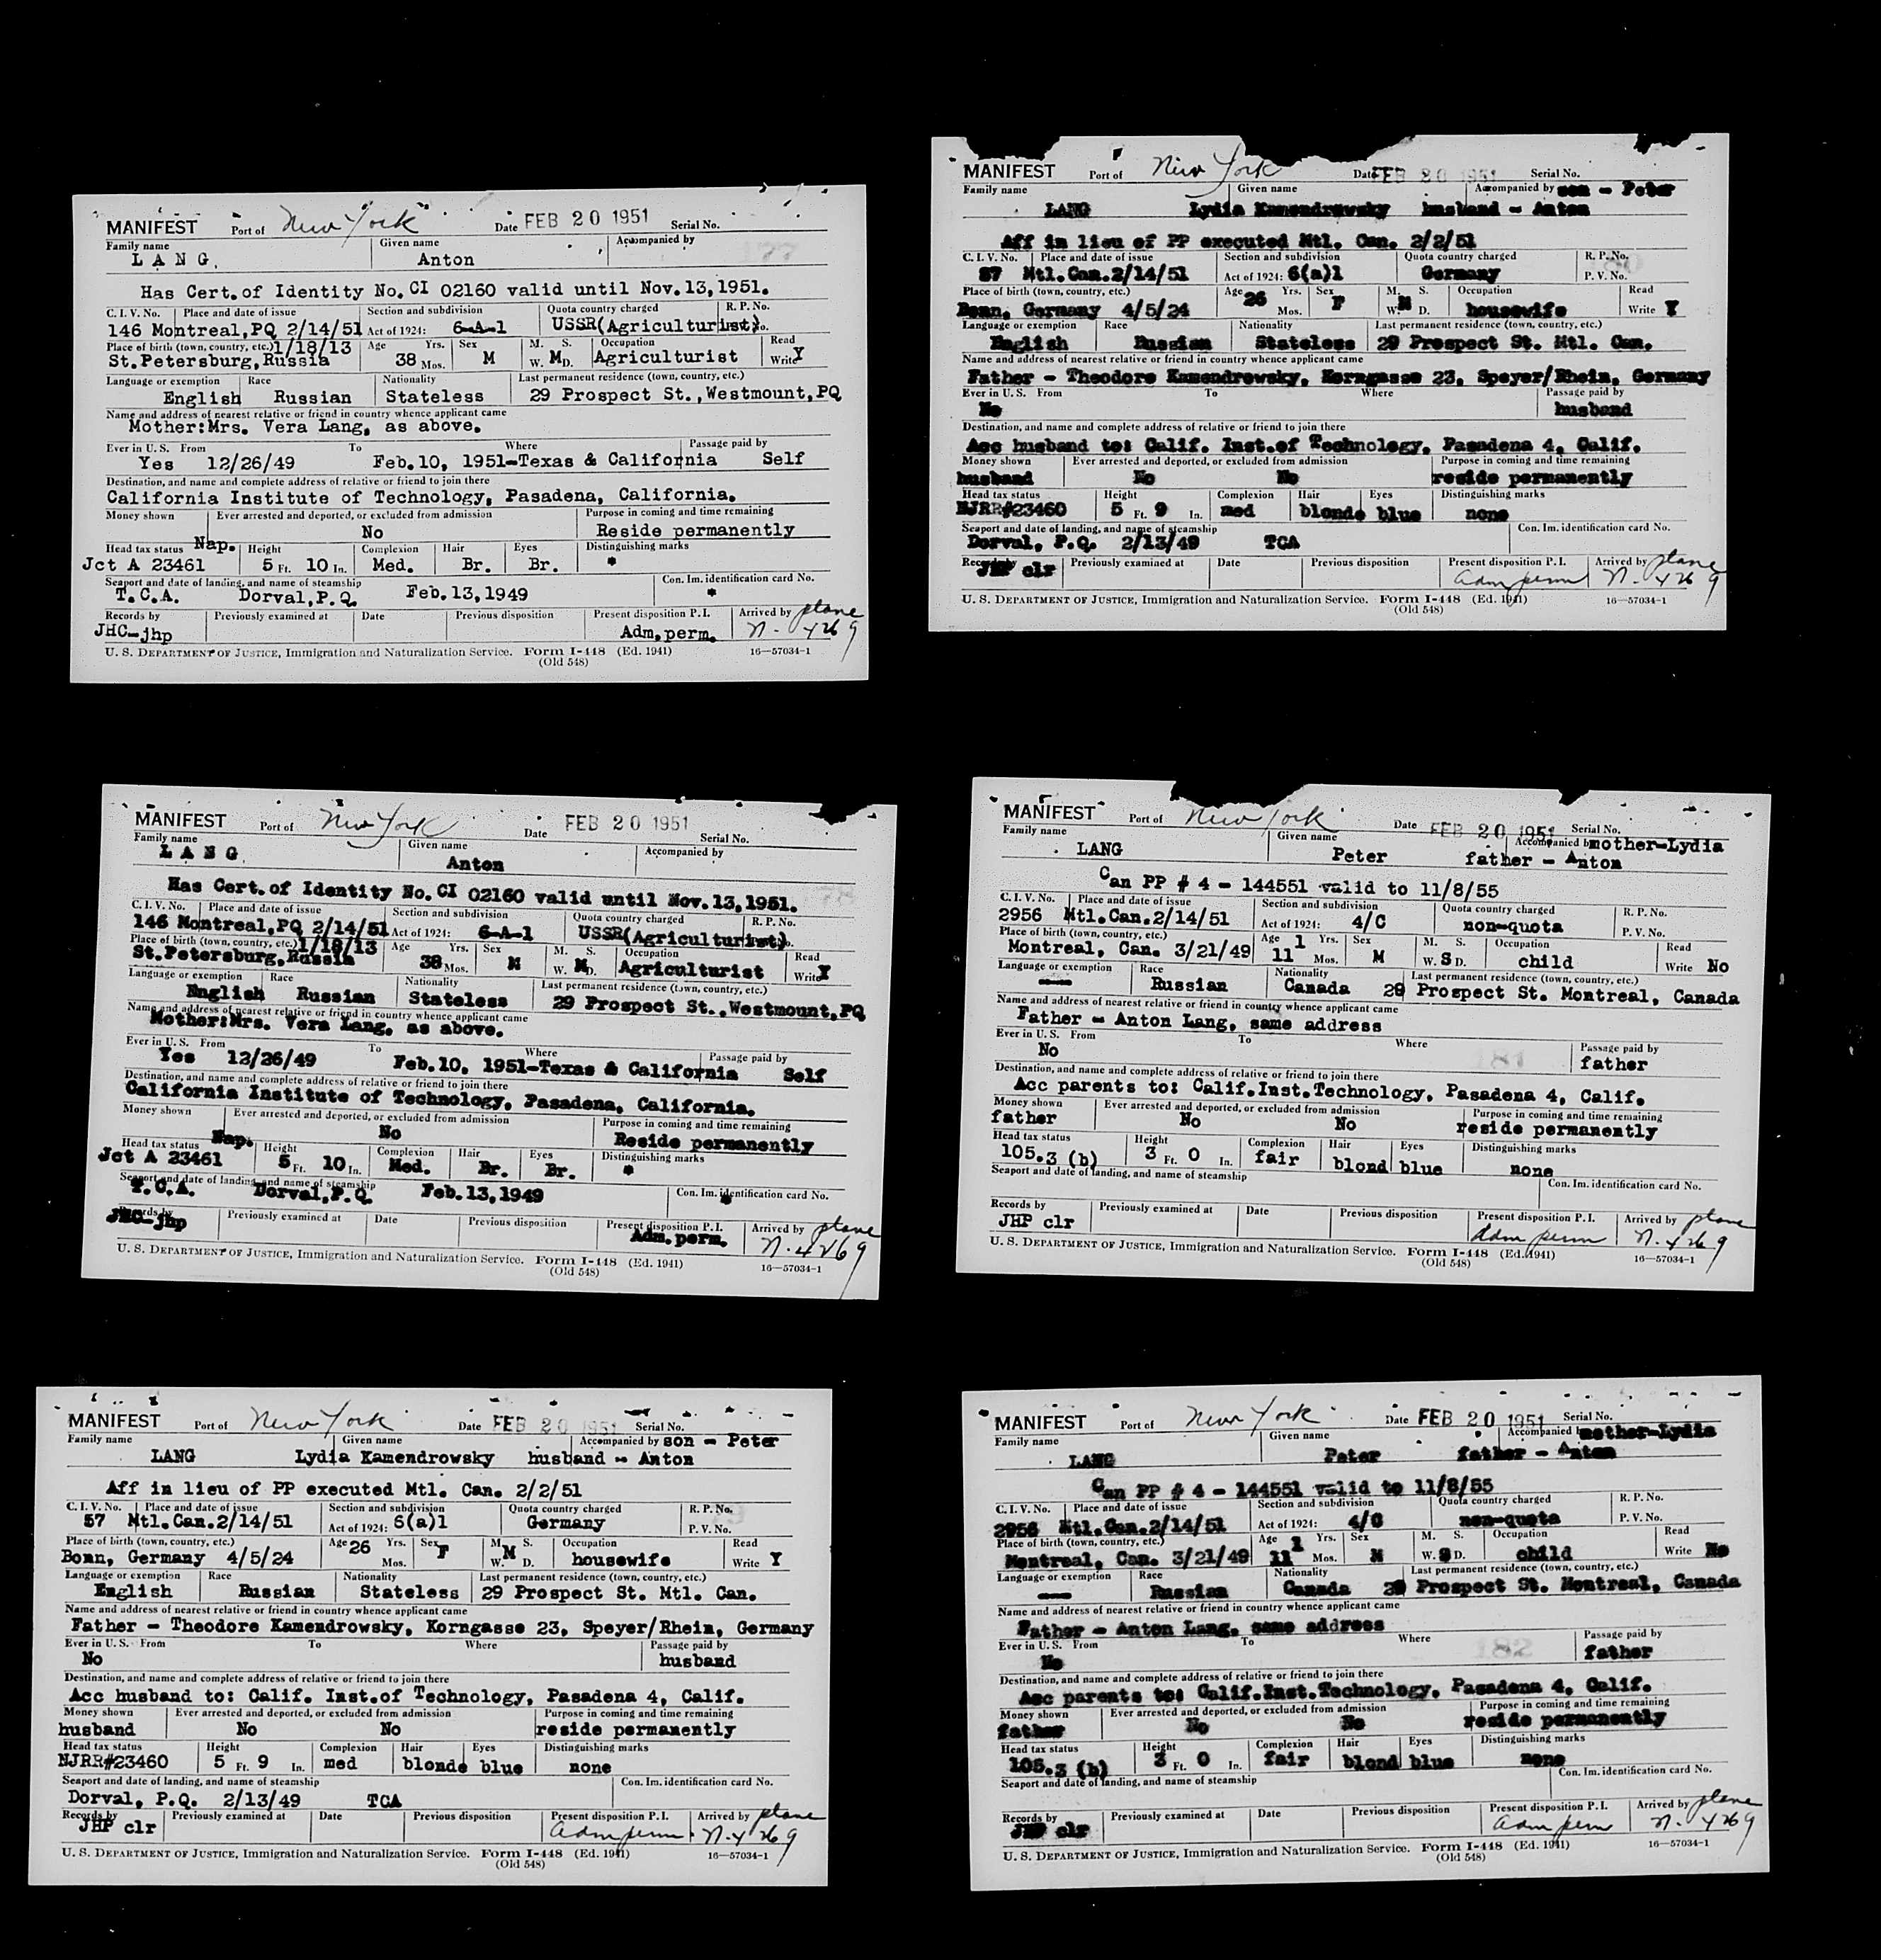 MANIFEST Port of New York Date FEB 20 1951 Serial No.
Family name Given name Accompanied by
L A N G, Anton
Has Cert. of Identity No. CI 02160 valid until Nov. 13, 1951.
C. I. V. No. Place and date of issue Section and subdivision Quota country charged R. P. No.
146 Montreal, PQ 2/14/51 Act of 1924: 6-A-1 USSR(Agriculturist)
Place of birth (town, country, etc.) 1/18/13 Age Yrs. Sex M. S. Occupation Read
St. Petersburg, Russia 38 Mos. M W. M D. Agriculturist Write Y
Language or exemption Race Nationality Last permanent residence (town, country, etc.)
English Russian Stateless 29 Prospect St., Westmount, PQ
Name and address of nearest relative or friend in country whence applicant came
Mother: Mrs. Vera Lang, as above.
Ever in U. S. From To Where Passage paid by
Yes 12/26/49 Feb. 10, 1951-Texas & California Self
Destination, and name and complete address of relative or friend to join there
California Institute of Technology, Pasadena, California.
Money shown Ever arrested and deported, or excluded from admission Purpose in coming and time remaining
No Reside permanently
Head tax status Nap. Height Complexion Hair Eyes Distinguishing marks
Jct A 23461 5 Ft. 10 In. Med. Br. Br. *
Seaport and date of landing, and name of steamship Con. Im. identification card No.
T.C.A. Dorval, P.Q. Feb. 13, 1949 *
Records by Previously examined at Date Previous disposition Present disposition P. I. Arrived by plane
JHC-jhp Adm. perm. N-4269
U. S. DEPARTMENT OF JUSTICE, Immigration and Naturalization Service. Form I-448 (Ed. 1941) 16—57034-1
(Old 548)
MANIFEST Port of New York Date FEB 20 1951 Serial No.
Family name Given name Accompanied by son - Peter
LANG Lydia Kamendrowsky husband - Anton
Aff in lieu of PP executed Mtl. Can. 2/2/51
C. I. V. No. Place and date of issue Section and subdivision Quota country charged R. P. No.
57 Mtl. Can. 2/14/51 Act of 1924: 6(a)1 Germany P. V. No.
Place of birth (town, country, etc.) Age 26 Yrs. Sex M. S. Occupation Read
Bonn, Germany 4/5/24 Mos. F W. M D. housewife Write Y
Language or exemption Race Nationality Last permanent residence (town, country, etc.)
English Russian Stateless 29 Prospect St. Mtl. Can.
Name and address of nearest relative or friend in country whence applicant came
Father - Theodore Kamendrowsky, Korngasse 23, Speyer/Rhein, Germany
Ever in U. S. From To Where Passage paid by
No husband
Destination, and name and complete address of relative or friend to join there
Acc husband to: Calif. Inst. of Technology, Pasadena 4, Calif.
Money shown Ever arrested and deported, or excluded from admission Purpose in coming and time remaining
husband No No reside permanently
Head tax status Height Complexion Hair Eyes Distinguishing marks
NJRR#23460 5 Ft. 9 In. med blonde blue none
Seaport and date of landing, and name of steamship Con. Im. identification card No.
Dorval, P.Q. 2/13/49 TCA
Records by Previously examined at Date Previous disposition Present disposition P. I. Arrived by plane
JHP clr adm perm N-4269
U. S. DEPARTMENT OF JUSTICE, Immigration and Naturalization Service. Form I-448 (Ed. 1941) 16—57034-1
(Old 548)
MANIFEST Port of New York Date FEB 20 1951 Serial No.
Family name Given name Accompanied by
L A N G Anton
78
Has Cert. of Identity No. CI 02160 valid until Nov. 13, 1951.
C. I. V. No. Place and date of issue Section and subdivision Quota country charged R. P. No.
146 Montreal, PQ 2/14/51 Act of 1924: 6-A-1 USSR(Agriculturist)
Place of birth (town, country, etc.) 1/18/13 Age Yrs. Sex M. S. Occupation Read
St. Petersburg, Russia 38 Mos. M W. M D. Agriculturist Write Y
Language or exemption Race Nationality Last permanent residence (town, country, etc.)
English Russian Stateless 29 Prospect St., Westmount, PQ
Name and address of nearest relative or friend in country whence applicant came
Mother: Mrs. Vera Lang, as above.
Ever in U. S. From To Where Passage paid by
Yes 12/26/49 Feb. 10, 1951-Texas & California Self
Destination, and name and complete address of relative or friend to join there
California Institute of Technology, Pasadena, California.
Money shown Ever arrested and deported, or excluded from admission Purpose in coming and time remaining
No Reside permanently
Head tax status Nap. Height Complexion Hair Eyes Distinguishing marks
Jct A 23461 5 Ft. 10 In. Med. Br. Br. *
Seaport and date of landing, and name of steamship Con. Im. identification card No.
T.C.A. Dorval, P.Q. Feb. 13, 1949 *
Records by Previously examined at Date Previous disposition Present disposition P. I. Arrived by plane
JHC-jhp Adm. perm. N-4269
U. S. DEPARTMENT OF JUSTICE, Immigration and Naturalization Service. Form I-448 (Ed. 1941) 16—57034-1
(Old 548)
MANIFEST Port of New York Date FEB 20 1951 Serial No.
Family name Given name Accompanied by mother-Lydia
LANG Peter father - Anton
Can PP # 4 - 144551 valid to 11/8/55
C. I. V. No. Place and date of issue Section and subdivision Quota country charged R. P. No.
2956 Mtl. Can. 2/14/51 Act of 1924: 4/C non-quota P. V. No.
Place of birth (town, country, etc.) Age 1 Yrs. Sex M. S. Occupation Read
Montreal, Can. 3/21/49 11 Mos. M W. S D. child Write No
Language or exemption Race Nationality Last permanent residence (town, country, etc.)
---- Russian Canada 29 Prospect St. Montreal, Canada
Name and address of nearest relative or friend in country whence applicant came
Father - Anton Lang, same address
Ever in U. S. From To Where Passage paid by
No 181 father
Destination, and name and complete address of relative or friend to join there
Acc parents to: Calif. Inst. Technology, Pasadena 4, Calif.
Money shown Ever arrested and deported, or excluded from admission Purpose in coming and time remaining
father No No reside permanently
Head tax status Height Complexion Hair Eyes Distinguishing marks
105.3 (b) 3 Ft. 0 In. fair blond blue none
Seaport and date of landing, and name of steamship Con. Im. identification card No.
Records by Previously examined at Date Previous disposition Present disposition P. I. Arrived by plane
JHP clr Adm perm N-4269
U. S. DEPARTMENT OF JUSTICE, Immigration and Naturalization Service. Form I-448 (Ed. 1941) 16—57034-1
(Old 548)
MANIFEST Port of New York Date FEB 20 1951 Serial No.
Family name Given name Accompanied by son - Peter
LANG Lydia Kamendrowsky husband - Anton
Aff in lieu of PP executed Mtl. Can. 2/2/51
C. I. V. No. Place and date of issue Section and subdivision Quota country charged R. P. No.
57 Mtl. Can. 2/14/51 Act of 1924: 6(a)1 Germany P. V. No.
Place of birth (town, country, etc.) Age 26 Yrs. Sex M. S. Occupation Read
Bonn, Germany 4/5/24 Mos. F M W. D. housewife Write Y
Language or exemption Race Nationality Last permanent residence (town, country, etc.)
English Russian Stateless 29 Prospect St. Mtl. Can.
Name and address of nearest relative or friend in country whence applicant came
Father - Theodore Kamendrowsky, Korngasse 23, Speyer/Rhein, Germany
Ever in U. S. From To Where Passage paid by
No husband
Destination, and name and complete address of relative or friend to join there
Acc husband to: Calif. Inst. of Technology, Pasadena 4, Calif.
Money shown Ever arrested and deported, or excluded from admission Purpose in coming and time remaining
husband No No reside permanently
Head tax status Height Complexion Hair Eyes Distinguishing marks
NJRR#23460 5 Ft. 9 In. med blonde blue none
Seaport and date of landing, and name of steamship Con. Im. identification card No.
Dorval, P.Q. 2/13/49 TCA
Records by Previously examined at Date Previous disposition Present disposition P. I. Arrived by plane
JHP clr adm perm. N-4269
U. S. DEPARTMENT OF JUSTICE, Immigration and Naturalization Service. Form I-448 (Ed. 1941) 16—57034-1
(Old 548)
MANIFEST Port of New York Date FEB 20 1951 Serial No.
Family name Given name Accompanied by mother-Lydia
LANG Peter father - Anton
Can PP # 4 - 144551 valid to 11/8/55
C. I. V. No. Place and date of issue Section and subdivision Quota country charged R. P. No.
2956 Mtl. Can. 2/14/51 Act of 1924: 4/C non-quota P. V. No.
Place of birth (town, country, etc.) Age 1 Yrs. Sex M. S. Occupation Read
Montreal, Can. 3/21/49 11 Mos. M W. S D. child Write No
Language or exemption Race Nationality Last permanent residence (town, country, etc.)
---- Russian Canada 29 Prospect St. Montreal, Canada
Name and address of nearest relative or friend in country whence applicant came
Father - Anton Lang, same address
Ever in U. S. From To Where Passage paid by
No 182 father
Destination, and name and complete address of relative or friend to join there
Acc parents to: Calif. Inst. Technology, Pasadena 4, Calif.
Money shown Ever arrested and deported, or excluded from admission Purpose in coming and time remaining
father No No reside permanently
Head tax status Height Complexion Hair Eyes Distinguishing marks
105.3 (b) 3 Ft. 0 In. fair blond blue none
Seaport and date of landing, and name of steamship Con. Im. identification card No.
Records by Previously examined at Date Previous disposition Present disposition P. I. Arrived by plane
JHP clr adm perm N-4269
U. S. DEPARTMENT OF JUSTICE, Immigration and Naturalization Service. Form I-448 (Ed. 1941) 16—57034-1
(Old 548)